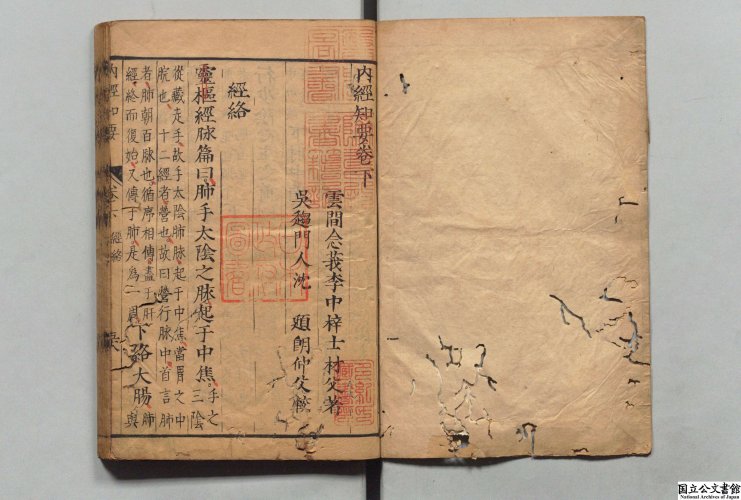 內經知要卷下
雲間念莪李中梓士材父著
吳趨門人沈 頲朗仲父較
經絡
靈樞經脉篇曰肺手太陰之脉起于中焦手之三陰
從藏走手故手太陰肺脉起于中焦當胃之中
脘也十二經者營也故曰營行脉中首言肺
者肺朝百脉也循序相傳盡于肝
經終而復始又傳于肺是為一周下絡大腸肺與
內經知要 卷下 經絡
国立公文書館
National Archives of Japan